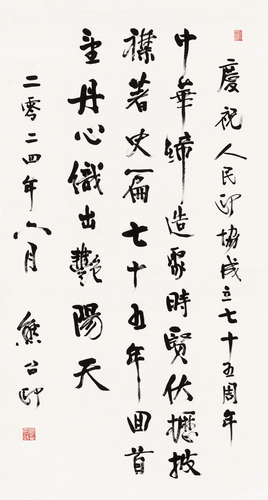 慶祝人民政協成立七十五周年
中華締造聚時賢伏櫪披
襟著史篇七十五年回首
望丹心織出艷陽天
二零二四年八月 熊召政